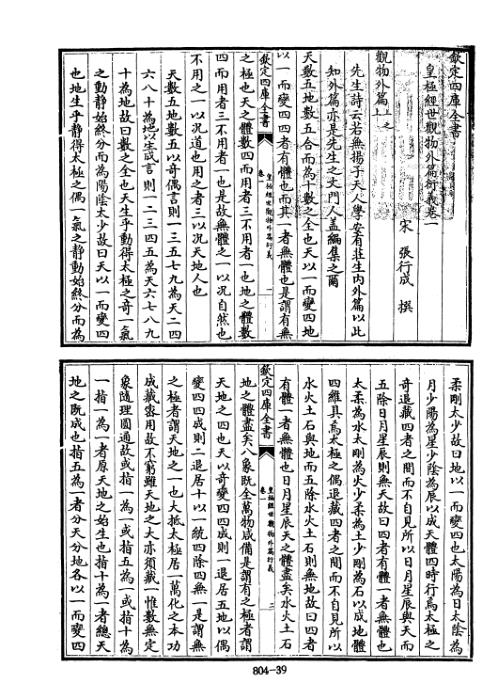 欽定四庫全書
皇極經世觀物外篇衍義卷一
宋 張行成 撰
觀物外篇上之上
先生詩云若無揚子天人學安有莊生內外篇以此
知外篇亦是先生之文門人蓋編集之爾
天數五地數五合而為十數之全也天以一而變四地
以一而變四四者有體也而其一者無體也是謂有無
之極也天之體數四而用者三不用者一也地之體數
四而用者三不用者一也是故無體之一以況自然也
不用之一以況道也用之者三以況天地人也
天數五地數五以奇偶言則一三五七九為天二四
六八十為地以生成言則一二三四五為天六七八九
十為地故曰數之全也天生乎動得太極之奇一氣
之動靜始終分而為陽陰太少故曰天以一而變四
也地生乎靜得太極之偶一氣之靜動始終分而為
欽定四庫全書
卷一
皇極經世觀物外篇衍義
一
柔剛太少故曰地以一而變四也太陽為日太陰為
月少陽為星少陰為辰以成天體四時行焉太極之
奇退藏四者之間而不自見所以日月星辰與天而
五除日月星辰則無天故曰四者有體一者無體也
太柔為水太剛為火少柔為土少剛為石以成地體
四維具焉太極之偶退藏四者之間而不自見所以
水火土石與地而五除水火土石則無地故曰四者
有體一者無體也日月星辰天之體盡矣水火土石
地之體盡矣八象既全萬物咸備是謂有之極者謂
天地之四也天以奇變四四成則一退居五地以偶
變四四成則二退居十以一統四除四無一是謂無
之極者謂天地之一也大抵太極居一萬化之本功
成藏密用故不窮雖天地之大亦須藏一惟數無定
象隨理圓通故或指一為一或指五為一或指十為
一指一為一者原天地之始生也指十為一者總天
地之既成也指五為一者分天分地各以一而變四
欽定四庫全書
卷一
皇極經世觀物外篇衍義
二
804-39